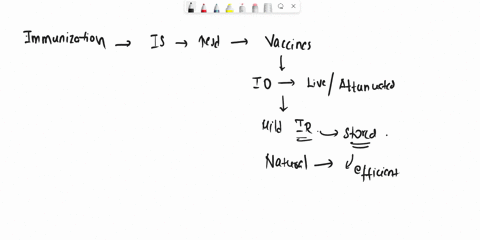 Immunization → IS → resd → Vaccines
ID → Live / Attanuated
Mild IR → Stored .
Natural → efficient